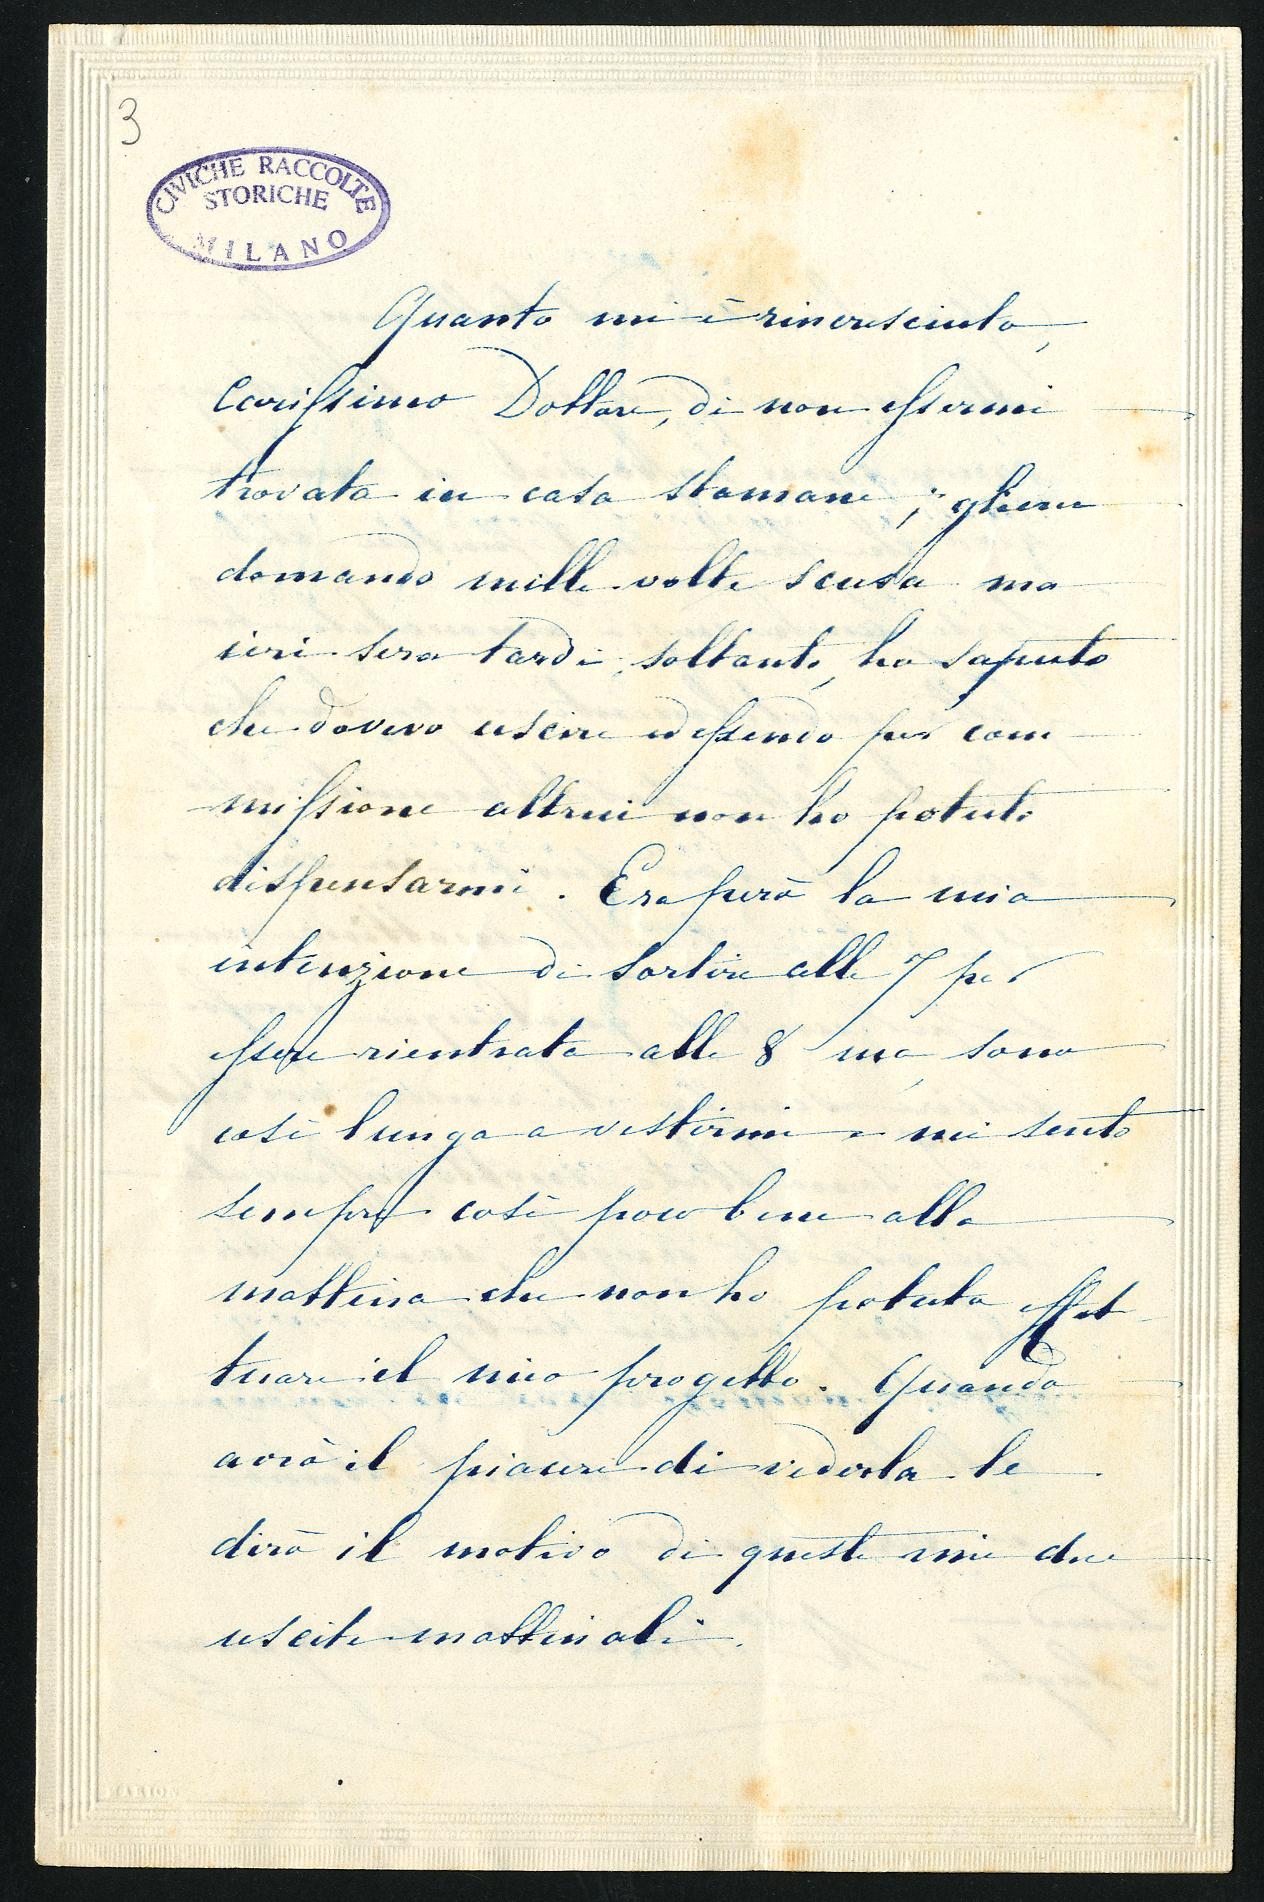 3
CIVICHE RACCOLTE
STORICHE
MILANO
Quanto mi è rincresciuto,
Carissimo Dottore, di non essermi
trovata in casa stamane; gliene
domando mille volte scusa ma
ieri sera tardi, soltanto, ho saputo
che dovevo uscire ed essendo per com
missione altrui non ho potuto
dispensarmi. Era però la mia
intenzione di sortire alle 7 per
essere rientrata alle 8 ma sono
così lunga a vestirmi e mi sento
sempre così poco bene alla
mattina che non ho potuto effet
tuare il mio progetto. Quando
avrò il piacere di vederla le
dirò il motivo di queste mie due
uscite mattinali.
MARION